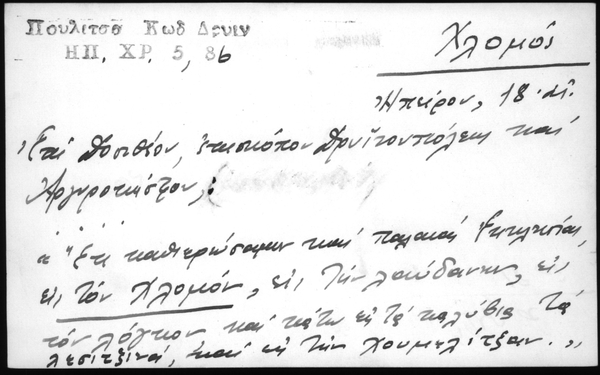 Πουλιτσα Κωδ Δρυιν
ΗΠ. ΧΡ. 5, 86
Χλομοῖ
Ἠπείρου, 18. αἰ.
Ἐπί Δοσιθέου, ἐπισκόπου Δρυϊνουπόλεως καί
Ἀργυροκάστρου,:
« Ἔτι καθιερώσαμεν καί παλαιαί Ἐκκλησίαι,
εἰς τόν Χλομόν, εἰς τήν εἰς
τόν λόγκον καί κάτω εἰς τά καλύβια τά
καί εἰς τήν Χουμελίτζαν.,,